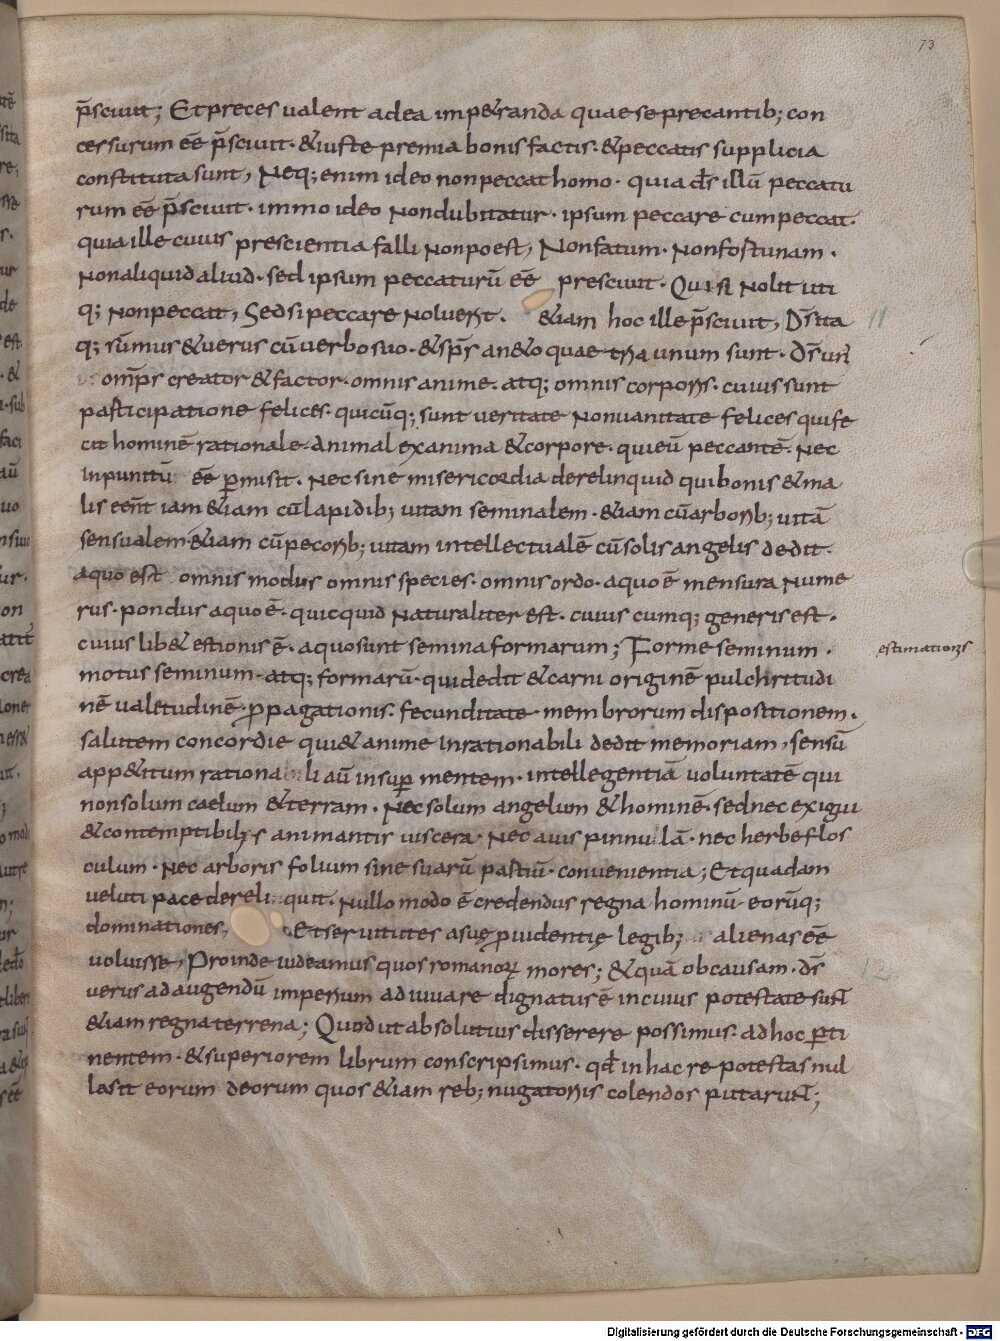 73
p̄sciuit; Et preces ualent ad ea impe&randa quae se precantib; con
cessurum eē p̄sciuit · & iuste premia bonis factis · & peccatis supplicia
constituta sunt, Neq; enim ideo non peccat homo · quia d̄s illū peccatu
rum eē p̄sciuit · immo ideo Non dubitatur · ipsum peccare cum peccat ·
quia ille cuius prescientia falli Non poest, Non fatum · Non fortunam ·
Non aliquid aliud · sed ipsum peccaturū eē presciuit · Qui si Nolit uti
q; Non peccat, Sed si peccare Noluerit · &iam hoc ille p̄sciuit, D̄s ita 11
q; sūmus & uerus cū uerbo suo · & sp̄s an&o quae tria unum sunt · D̄s un
omp̄s creator & factor · omnis anime · atq; omnis corporis · cuius sunt
participatione felices · quicūq; sunt ueritate Non uanitate felices qui fe
cit hominē rationale · animal ex anima & corpore · qui eū peccantē · Nec
inpunitū eē p̄misit · Nec sine misericordia derelinquid qui bonis & ma
lis eēnt iam &iam cū lapidib; uitam seminalem · &iam cū arborib; uitā
sensualem · &iam cū pecorib; uitam intellectualē cū solis angelis dedit ·
a quo est omnis modus omnis species · omnis ordo · a quo ē mensura Nume
rus · pondus a quo ē · quicquid Naturaliter est · cuius cumq; generis est ·
cuius lib& estionis ē · a quo sunt semina formarum; Forme seminum ·
estimationis
motus seminum · atq; formarū · qui dedit & carni originē pulchritudi
nē ualetudinē · p̄pagationis · fecunditate · membrorum dispositionem ·
salutem concordie qui & anime inrationabili dedit memoriam, sensū
app&itum rationali aū insup̄ mentem · intellegentiā uoluntatē qui
non solum caelum & terram · Nec solum angelum & hominē · sed nec exigui
& contemptibilis animantis uiscera · Nec auis pinnulā · nec herbe flos
culum · Nec arboris folium sine suarū partiū · conuenientia; Et quadam
ueluti pace dereliquit · Nullo modo ē credendus regna hominū · eorūq;
dominationes, Et seruitutes a suę p̄uidentię legib; alienas eē
uoluisse, Proinde uideamus quos romanorum mores; & quā ob causam · d̄s 12
uerus ad augendū imperium adiuuare dignatus ē in cuius potestate sunt
&iam regna terrena; Quod ut absolutius disserere possimus · ad hoc p̄ti
nentem · & superiorem librum conscripsimus · qd̄ in hac re potestas nul
la sit eorum deorum quos &iam reb; nugatoriis colendos putarunt;
Digitalisierung gefördert durch die Deutsche Forschungsgemeinschaft - DFG